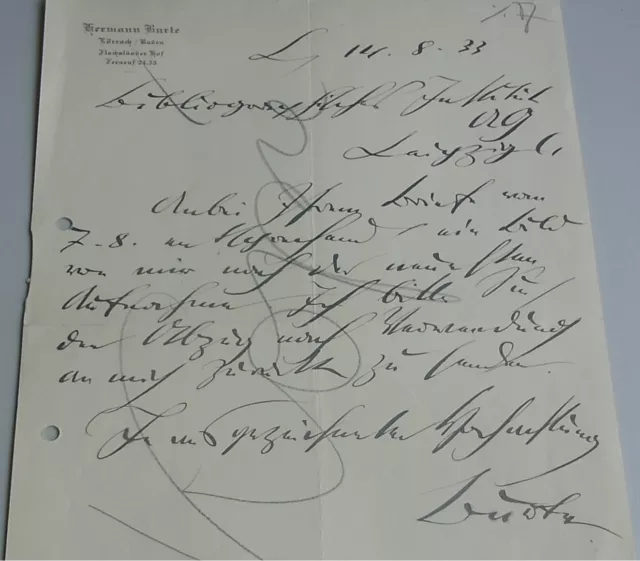 Hermann Burte
Lörrach/Baden
Flachsländer Hof
Fernruf 31.35
L, 14. 8. 33
Bibliographisches Institut
AG
Leipzig C1
Anbei Ihrem Briefe vom
7. 8. ein Bild
von mir nach der neuesten
Aufnahme. Ich bitte Sie,
den Abzug nach Verwendung
an mich zurück zu senden.
In ausgezeichneter Hochachtung
Burte